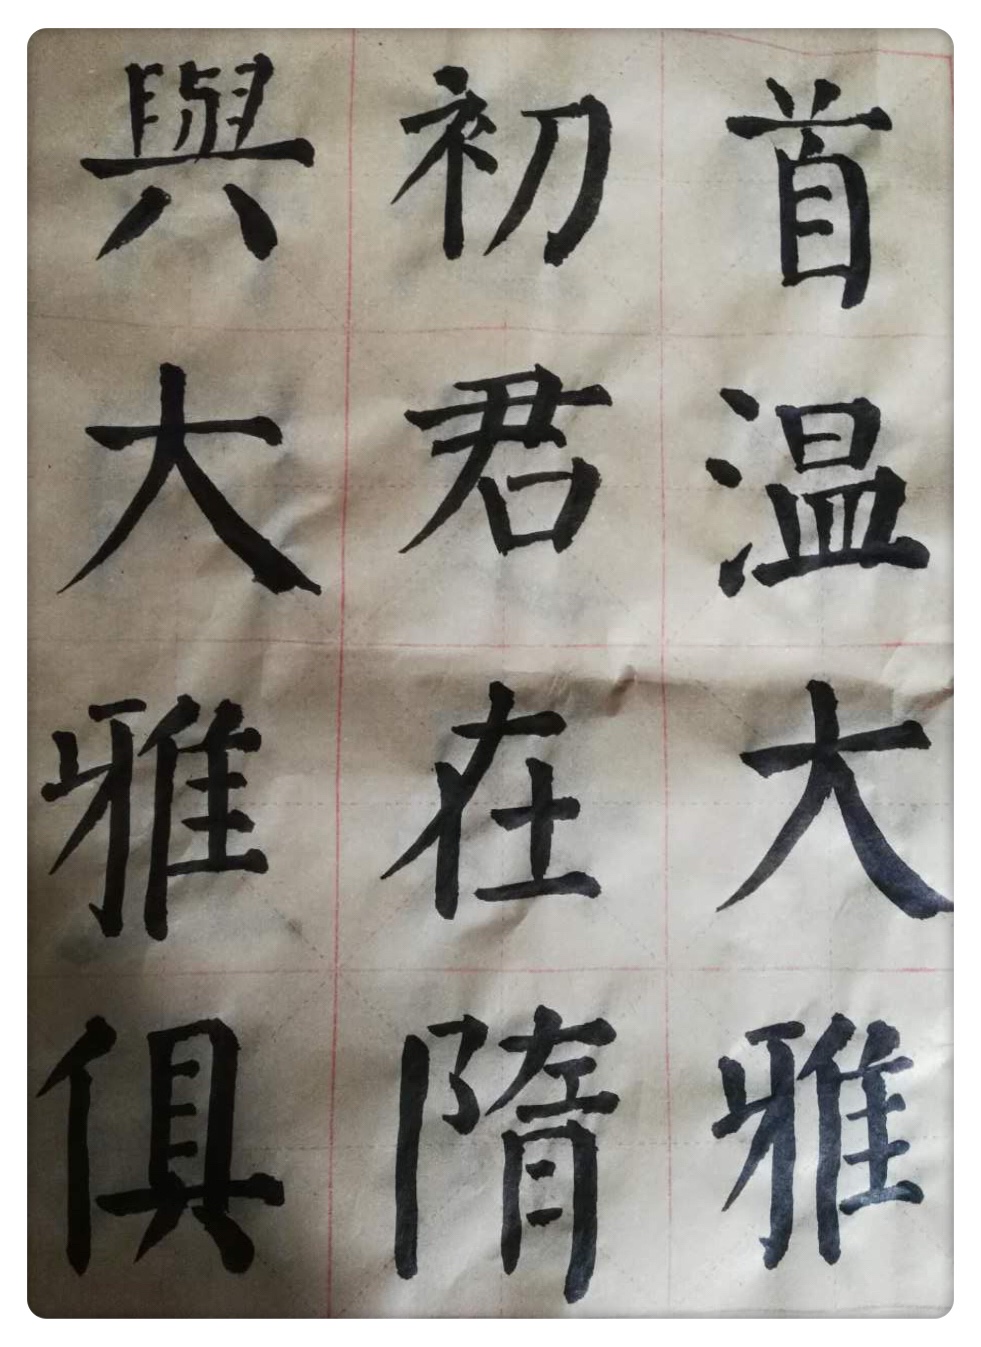 首温大雅
初君在隋
與大雅俱